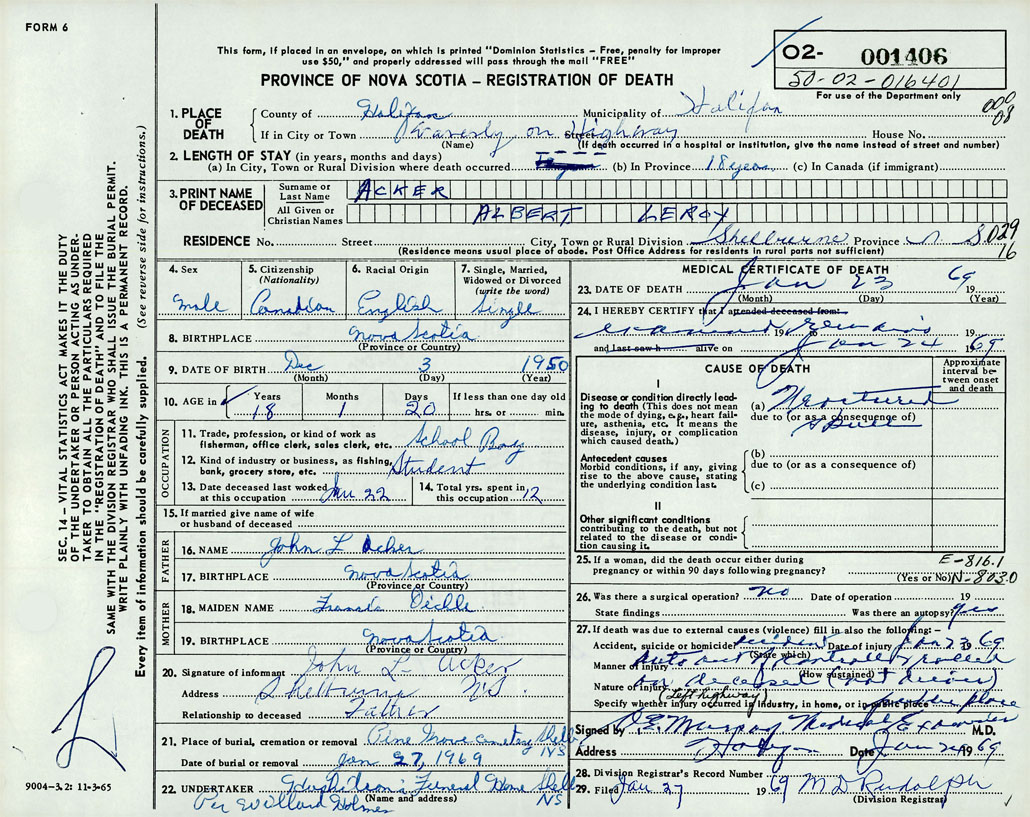 FORM 6
This form, if placed in an envelope, on which is printed "Dominion Statistics – Free, penalty for improper
use $50," and properly addressed will pass through the mail "FREE"
PROVINCE OF NOVA SCOTIA – REGISTRATION OF DEATH
02- 001406
50-02-016401
For use of the Department only
000
08
1. PLACE OF DEATH
County of Halifax Municipality of Halifax
If in City or Town Waverly on Street Highway House No.
(Name) (If death occurred in a hospital or institution, give the name instead of street and number)
2. LENGTH OF STAY (in years, months and days)
(a) In City, Town or Rural Division where death occurred (b) In Province 18 years (c) In Canada (if immigrant)
3. PRINT NAME OF DECEASED
Surname or Last Name ACKER
All Given or Christian Names ALBERT LEROY
RESIDENCE No. Street City, Town or Rural Division Shelburne Province N S 029
16
(Residence means usual place of abode. Post Office Address for residents in rural parts not sufficient)
4. Sex
Male
5. Citizenship
(Nationality)
Canadian
6. Racial Origin
English
7. Single, Married,
Widowed or Divorced
(write the word)
Single
8. BIRTHPLACE Nova Scotia
(Province or Country)
9. DATE OF BIRTH Dec 3 1950
(Month) (Day) (Year)
10. AGE in
Years Months Days If less than one day old
18 1 20 hrs. or min.
OCCUPATION
11. Trade, profession, or kind of work as
fisherman, office clerk, sales clerk, etc. School Boy
12. Kind of industry or business, as fishing,
bank, grocery store, etc. Student
13. Date deceased last worked
at this occupation Jan 22
14. Total yrs. spent in
this occupation 12
15. If married give name of wife
or husband of deceased
FATHER
16. NAME John L Acker
17. BIRTHPLACE Nova Scotia
(Province or Country)
MOTHER
18. MAIDEN NAME
19. BIRTHPLACE Nova Scotia
(Province or Country)
20. Signature of informant John L Acker
Address Shelburne N.S.
Relationship to deceased Father
21. Place of burial, cremation or removal Pine Grove Cemetery Shelb NS
Date of burial or removal Jan 27, 1969
22. UNDERTAKER Funeral Home Shelb NS
(Name and address)
Per Willard Holmes
MEDICAL CERTIFICATE OF DEATH
23. DATE OF DEATH Jan 23 19 69
(Month) (Day) (Year)
24. I HEREBY CERTIFY that I attended deceased from:
examined remains 19 19
and last saw h alive on Jan 24 19 69
CAUSE OF DEATH
Approximate
interval between
onset
and death
I
Disease or condition directly lead-
ing to death (This does not mean
the mode of dying, e.g., heart failure,
asthenia, etc. It means the
disease, injury, or complication
which caused death.)
(a) Fractured
due to (or as a consequence of)
Skull
Antecedent causes
Morbid conditions, if any, giving
rise to the above cause, stating
the underlying condition last.
(b)
due to (or as a consequence of)
(c)
II
Other significant conditions
contributing to the death, but not
related to the disease or condi-
tion causing it.
25. If a woman, did the death occur either during
pregnancy or within 90 days following pregnancy?
(Yes or No)
E-816.1
N-803.0
26. Was there a surgical operation? No Date of operation 19
State findings Was there an autopsy? yes
27. If death was due to external causes (violence) fill in also the following: –
Accident, suicide or homicide accident Date of injury Jan 23 19 69
(State which)
Manner of injury Auto out of control & rolled
(How sustained)
Nature of injury on deceased (not driver)
(Left highway)
Specify whether injury occurred in industry, in home, or in public place public place
Signed by Medical Examiner M.D.
Address Date Jan 24 19 69
28. Division Registrar's Record Number
29. Filed Jan 27 19 69 M D Rudolph
(Division Registrar)
SEC. 14 – VITAL STATISTICS ACT MAKES IT THE DUTY
OF THE UNDERTAKER OR PERSON ACTING AS UNDER-
TAKER TO OBTAIN ALL THE PARTICULARS REQUIRED
IN THE "REGISTRATION OF DEATH" AND TO FILE THE
SAME WITH THE DIVISION REGISTRAR WHO SHALL ISSUE THE BURIAL PERMIT.
WRITE PLAINLY WITH UNFADING INK. THIS IS A PERMANENT RECORD.
Every item of information should be carefully supplied. (See reverse side for instructions.)
9004–3.2: 11-3-65